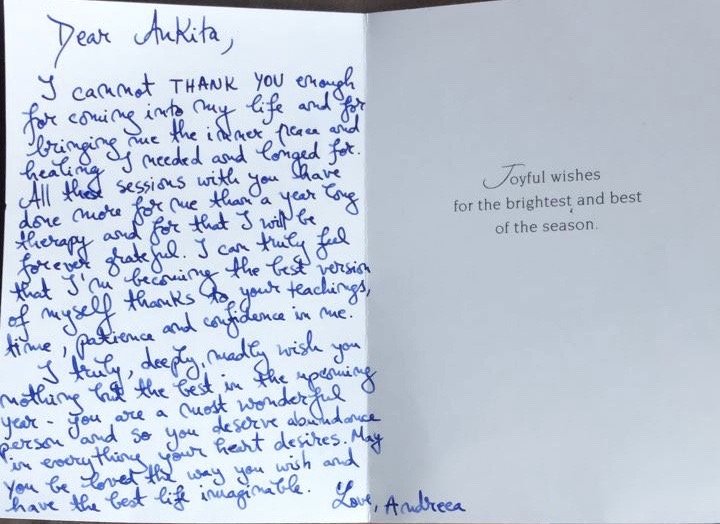 Dear Ankita,
I cannot THANK YOU enough
for coming into my life and for
bringing me the inner peace and
healing I needed and longed for.
All these sessions with you have
done more for me than a year long
therapy and for that I will be
forever grateful. I can truly feel
that I'm becoming the best version
of myself thanks to your teachings,
time, patience and confidence in me.
I truly, deeply, madly wish you
nothing but the best in the upcoming
year - you are a most wonderful
person and so you deserve abundance
in everything your heart desires. May
you be loved the way you wish and
have the best life imaginable.
Love, Andreea
Joyful wishes
for the brightest and best
of the season.